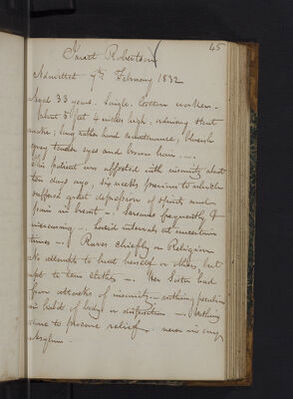 45
Janet Robertson
Admitted 7th February 1832
Aged 33 years. Single. Cotton worker.
About 5 feet 4 inches high. ordinary stout
make; long rather hard countenance, bluish
grey tender eyes and brown hair
This patient was affected with insanity about
ten days ago, six weeks previous to which
suffered great depression of spirits and
pain in breast. Screams frequently &
lucid intervals at uncertain
times. Raves chiefly on Religion
No attempts to hurt herself or others, but
apt to tear clothes. Her Sister had
few attacks of insanity. nothing peculiar
in habit of body or disposition. Nothing
done to procure relief. never in any
Asylum